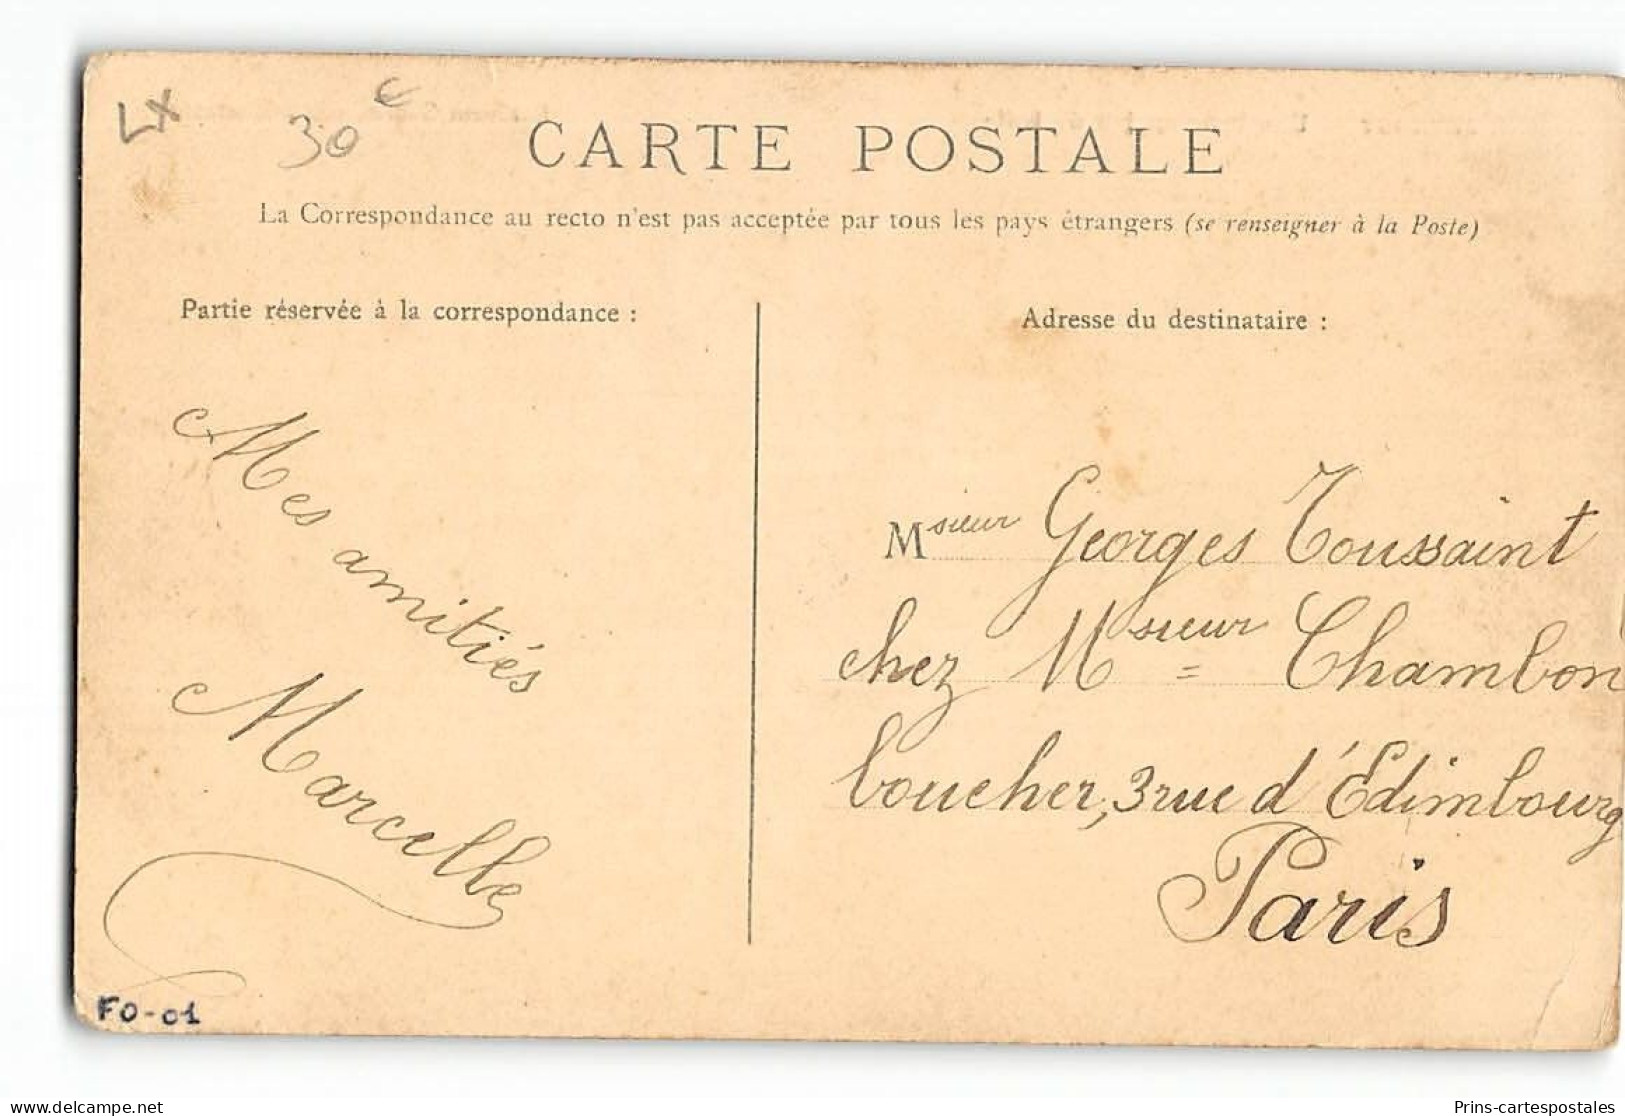 LX
30 €
CARTE POSTALE
La Correspondance au recto n'est pas acceptée par tous les pays étrangers (se renseigner à la Poste)
Partie réservée à la correspondance :
Mes amitiés
Marcelle
Adresse du destinataire :
Msieur Georges Toussaint
chez Msieur Chambon
boucher, 3 rue d'Édimbourg
Paris
FO-01
delcampe.net
Prins-cartespostales